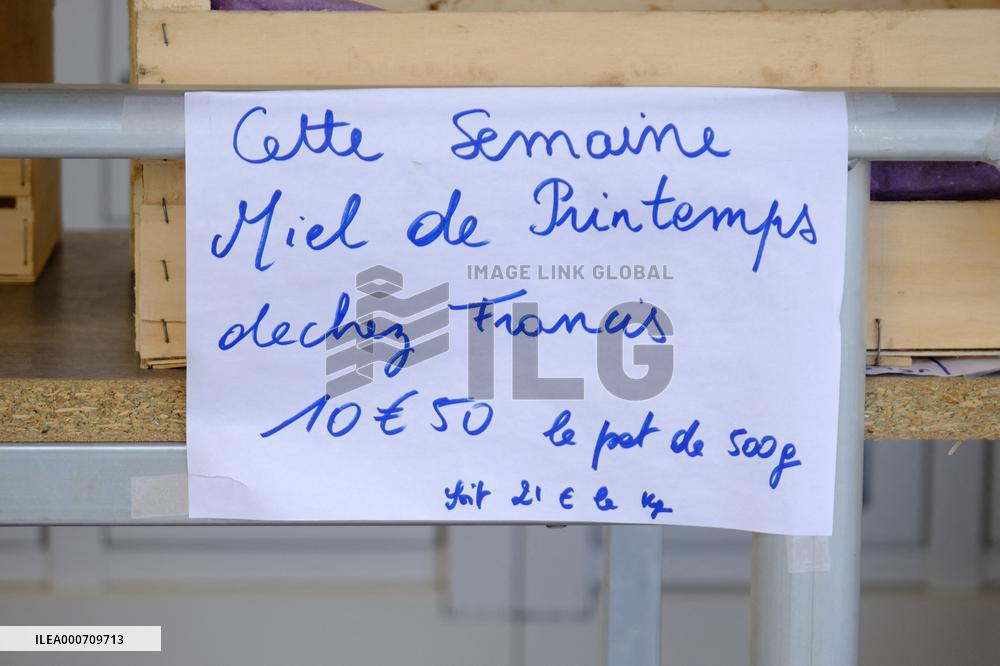 Cette Semaine
Miel de Printemps
de chez Francis
10 € 50 le pot de 500g
soit 21 € le kg
IMAGE LINK GLOBAL
ILG
ILEA000709713